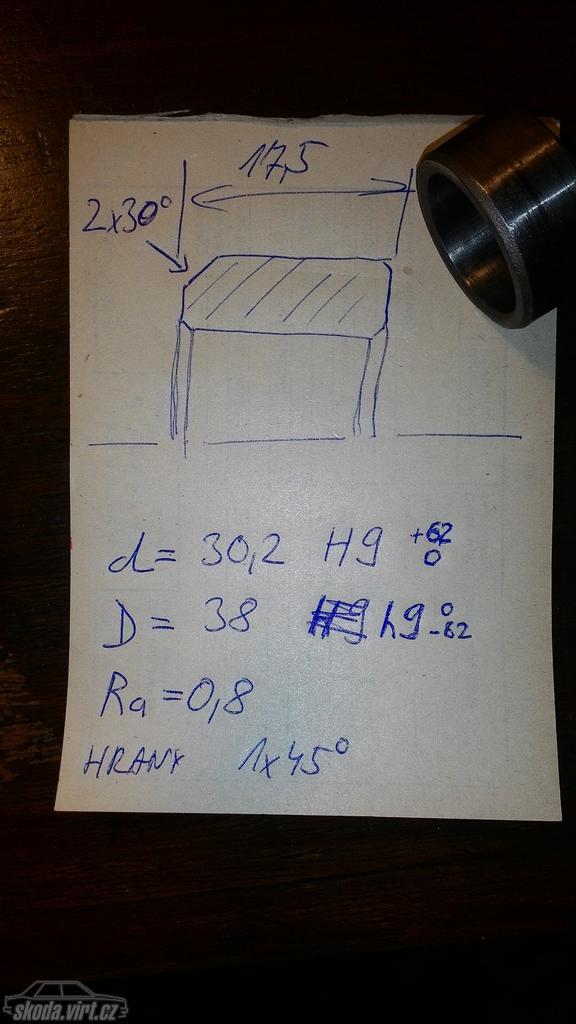 17,5
2x30°
d = 30,2 H9 +62 0
D = 38 h9 0 -62
Ra = 0,8
HRANY 1x45°
skoda.virt.cz